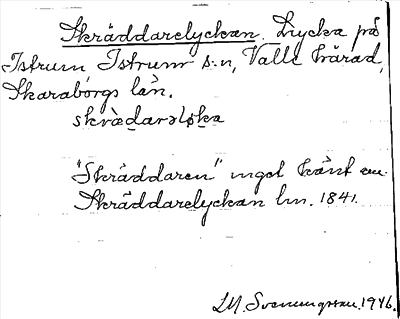 Skräddarelyckan. Lycka på
Istrum Istrums s:n, Valle härad,
Skaraborgs län.
skræ̀daraløka
"Skräddaren" inget känt om.
Skräddarelyckan lm. 1841.
M. Svenungsson. 1946.